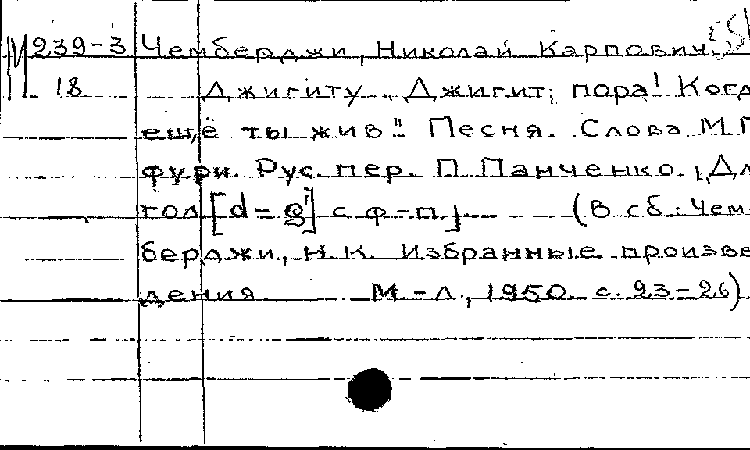 М 239-3 Чемберджи, Николай Карпович.
18 Джигиту. „Джигит, пора! Когд
ещё ты жив". Песня. Слова М.Г
фури. Рус. пер. П Панченко. [Дл
гол [d-g²] с ф-п.] (В сб.: Чем-
берджи, Н.К. Избранные произве
дения М.-Л., 1950 с. 23-26)